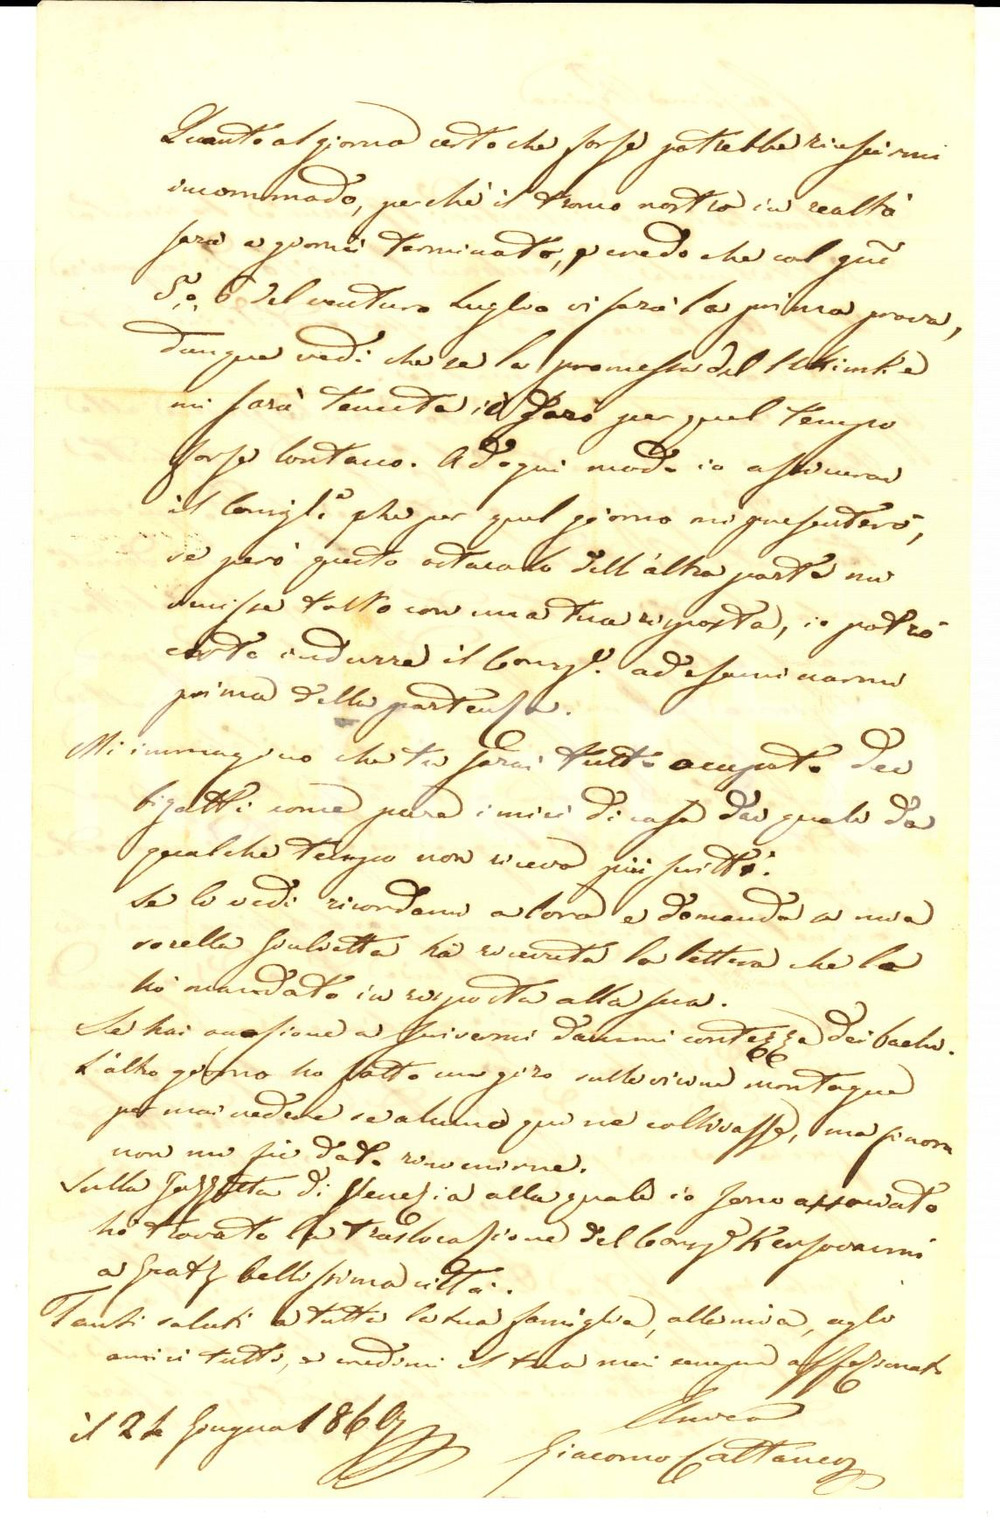 Quanto al giorno certo che forse potrebbe riuscirmi
incommodo, perchè il tronco nostro in realtà
sarà a giorni terminato, e credo che col gno
5, o 6 del venturo Luglio vi sarà la prima prova,
dunque vedi che se la promessa del
mi sarà tenuta io sarò per quel tempo
forse lontano. Ad ogni modo io assicurai
il Consiglre che per quel giorno mi presenterò,
se però questo ostacolo dell'altra parte mi
venisse tolto con una tua risposta, io potrò
certo indurre il Consigre ad esaminarmi
prima della partenza.
Mi immagino che tu sarai tutto occupato dei
bigatti come pure i miei di casa dai quali da
qualche tempo non ricevo più scritti.
Se li vedi ricordami a loro e domanda a mia
sorella Giulietta ha ricevuta la lettera che le
hò mandato in risposta alla sua.
Se hai occasione a scrivermi dammi contezza dei bachi.
L'altro giorno ho fatto un giro sulle vicine montagne
per mai vedere se alcuno qui ne coltivasse, ma finora
non mi fù dato rinvenirne.
Sulla Gazzetta di Venezia alla quale io sono associato
hò trovato la traslocazione del Consigre
a Gratz bellissima città.
Tanti saluti a tutta la tua famiglia, alla mia, agli
amici tutti, e credimi il tuo mai sempre affezionato
Amico
il 24 Giugno 1860 Giacomo Cattaneo